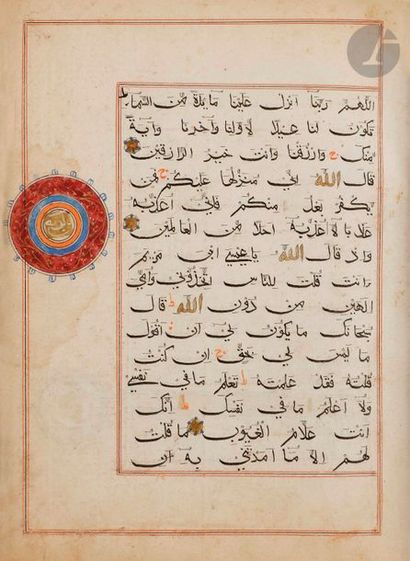 اللهم ربنا انزل علينا مايدة من السما
تكون لنا عيدا لاولنا واخرنا واية
منك وارزقنا وانت خير الرازقين
قال الله اني منزلها عليكم فمن
يكفر بعد منكم فاني اعذبه
عذابا لا اعذبه احدا من العالمين
واذ قال الله يا عيسى ابن مريم
وانت قلت للناس اتخذوني وامي
الهين من دون الله قال
سبحانك ما يكون لي ان اقول
ما ليس لي بحق ان كنت
قلته فقد علمته تعلم ما في نفسي
ولا اعلم ما في نفسك انك
انت علام الغيوب ما قلت
لهم الا ما امرتني به ان